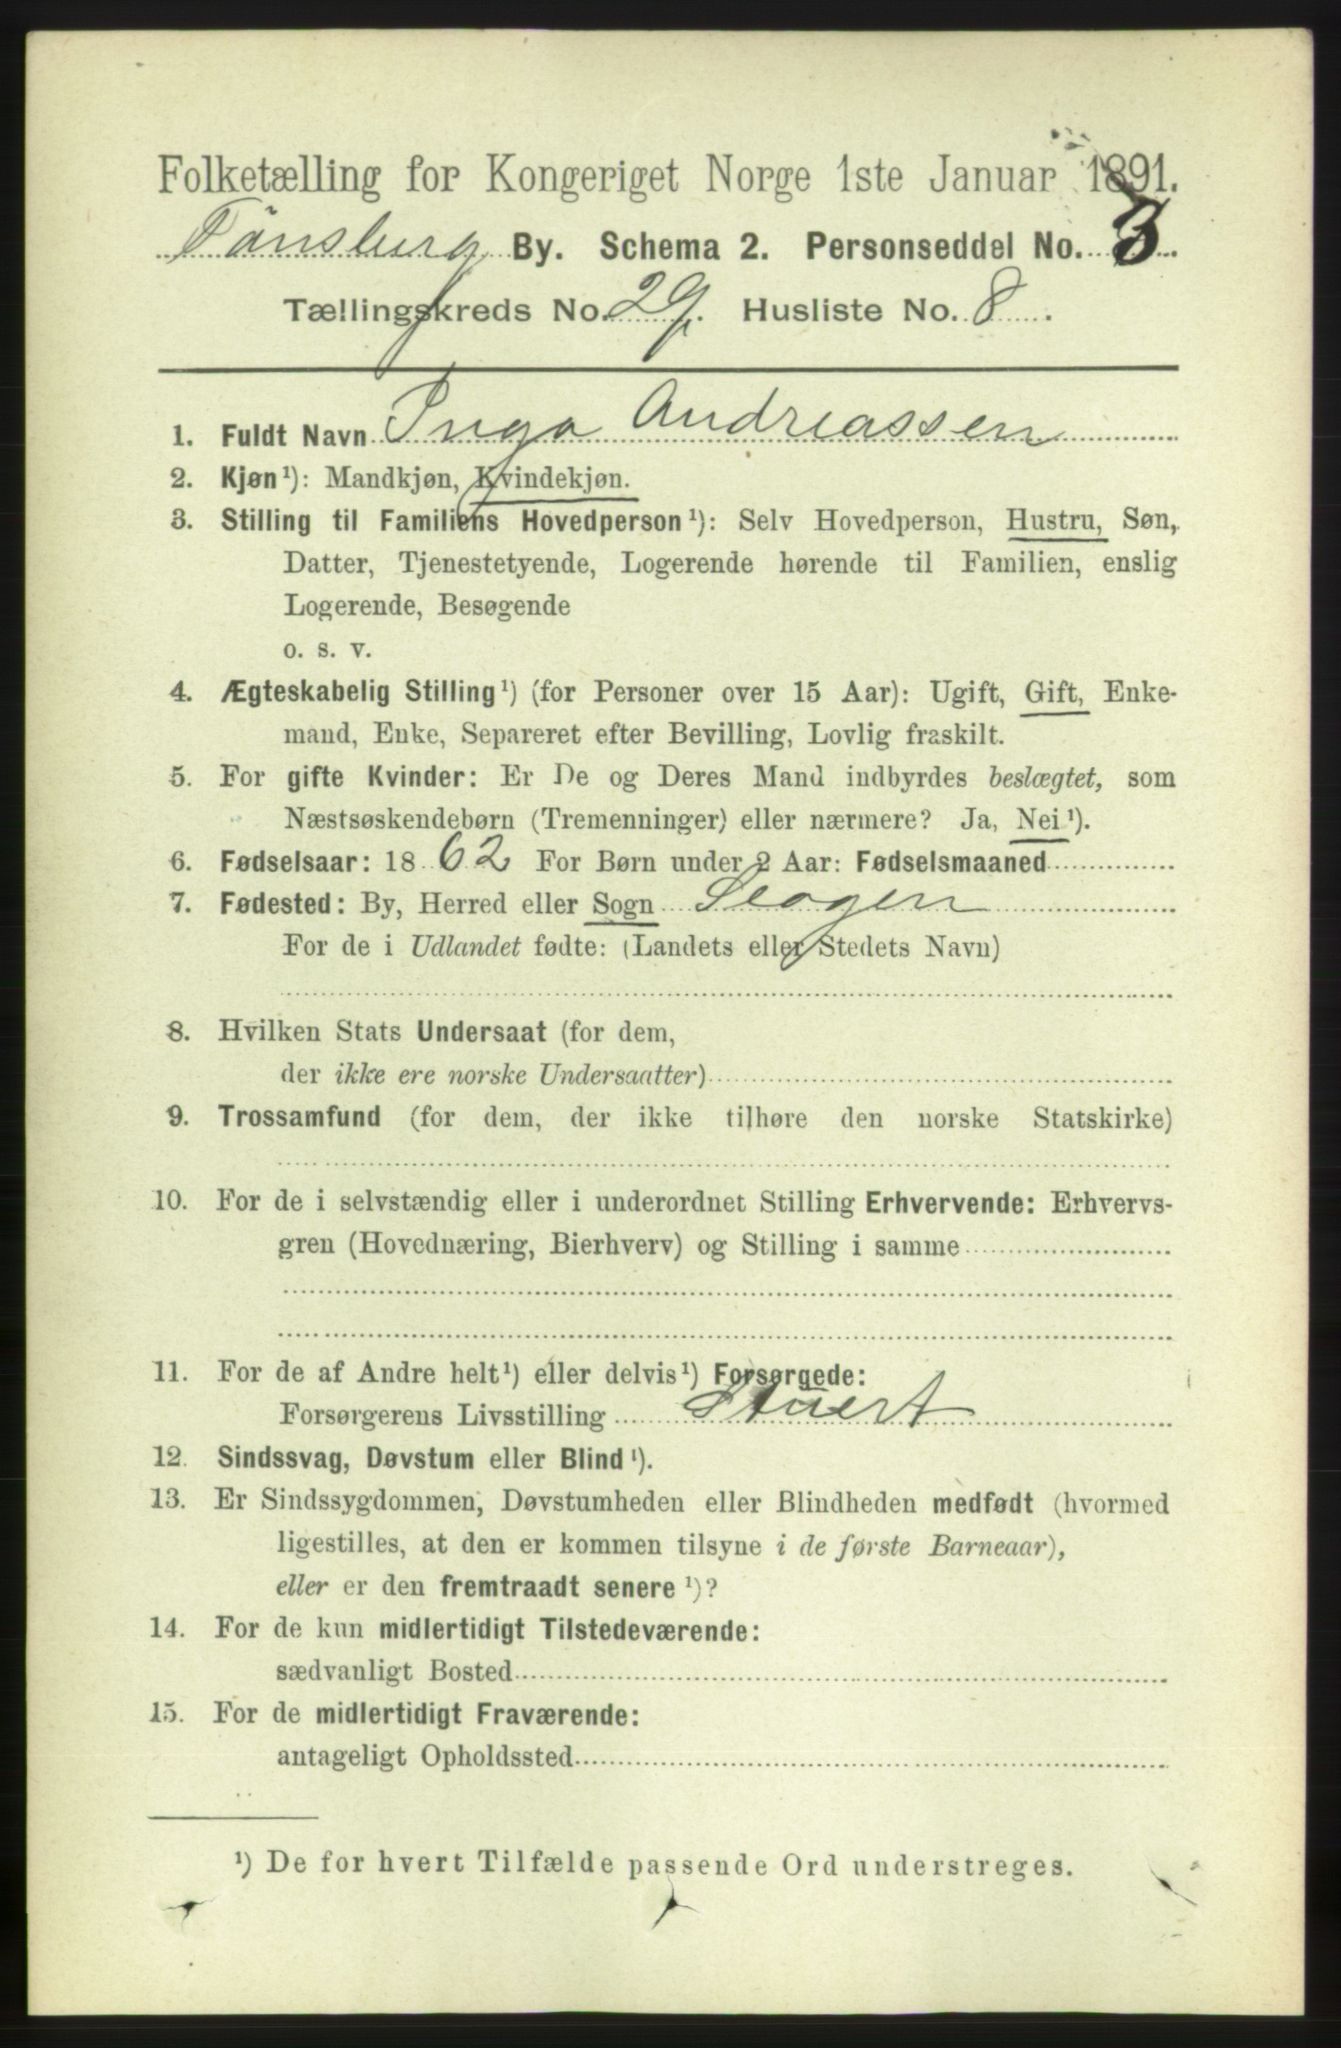 Folketælling for Kongeriget Norge 1ste Januar 1891.
Tönsberg By. Schema 2. Personseddel No. 3.
Tællingskreds No. 29. Husliste No. 8.
1. Fuldt Navn Inga Andreassen
2. Kjøn¹): Mandkjøn, Kvindekjøn.
3. Stilling til Familiens Hovedperson¹): Selv Hovedperson, Hustru, Søn,
Datter, Tjenestetyende, Logerende hørende til Familien, enslig
Logerende, Besøgende
o. s. v.
4. Ægteskabelig Stilling¹) (for Personer over 15 Aar): Ugift, Gift, Enke-
mand, Enke, Separeret efter Bevilling, Lovlig fraskilt.
5. For gifte Kvinder: Er De og Deres Mand indbyrdes beslægtet, som
Næstsøskendebørn (Tremenninger) eller nærmere? Ja, Nei¹).
6. Fødselsaar: 1862 For Børn under 2 Aar: Fødselsmaaned
7. Fødested: By, Herred eller Sogn Slagen
For de i Udlandet fødte: (Landets eller Stedets Navn)
8. Hvilken Stats Undersaat (for dem,
der ikke ere norske Undersaatter)
9. Trossamfund (for dem, der ikke tilhøre den norske Statskirke)
10. For de i selvstændig eller i underordnet Stilling Erhvervende: Erhvervs-
gren (Hovednæring, Bierhverv) og Stilling i samme
11. For de af Andre helt¹) eller delvis¹) Forsørgede:
Forsørgerens Livsstilling Stuert
12. Sindssvag, Døvstum eller Blind¹).
13. Er Sindssygdommen, Døvstumheden eller Blindheden medfødt (hvormed
ligestilles, at den er kommen tilsyne i de første Barneaar),
eller er den fremtraadt senere¹)?
14. For de kun midlertidigt Tilstedeværende:
sædvanligt Bosted
15. For de midlertidigt Fraværende:
antageligt Opholdssted
¹) De for hvert Tilfælde passende Ord understreges.